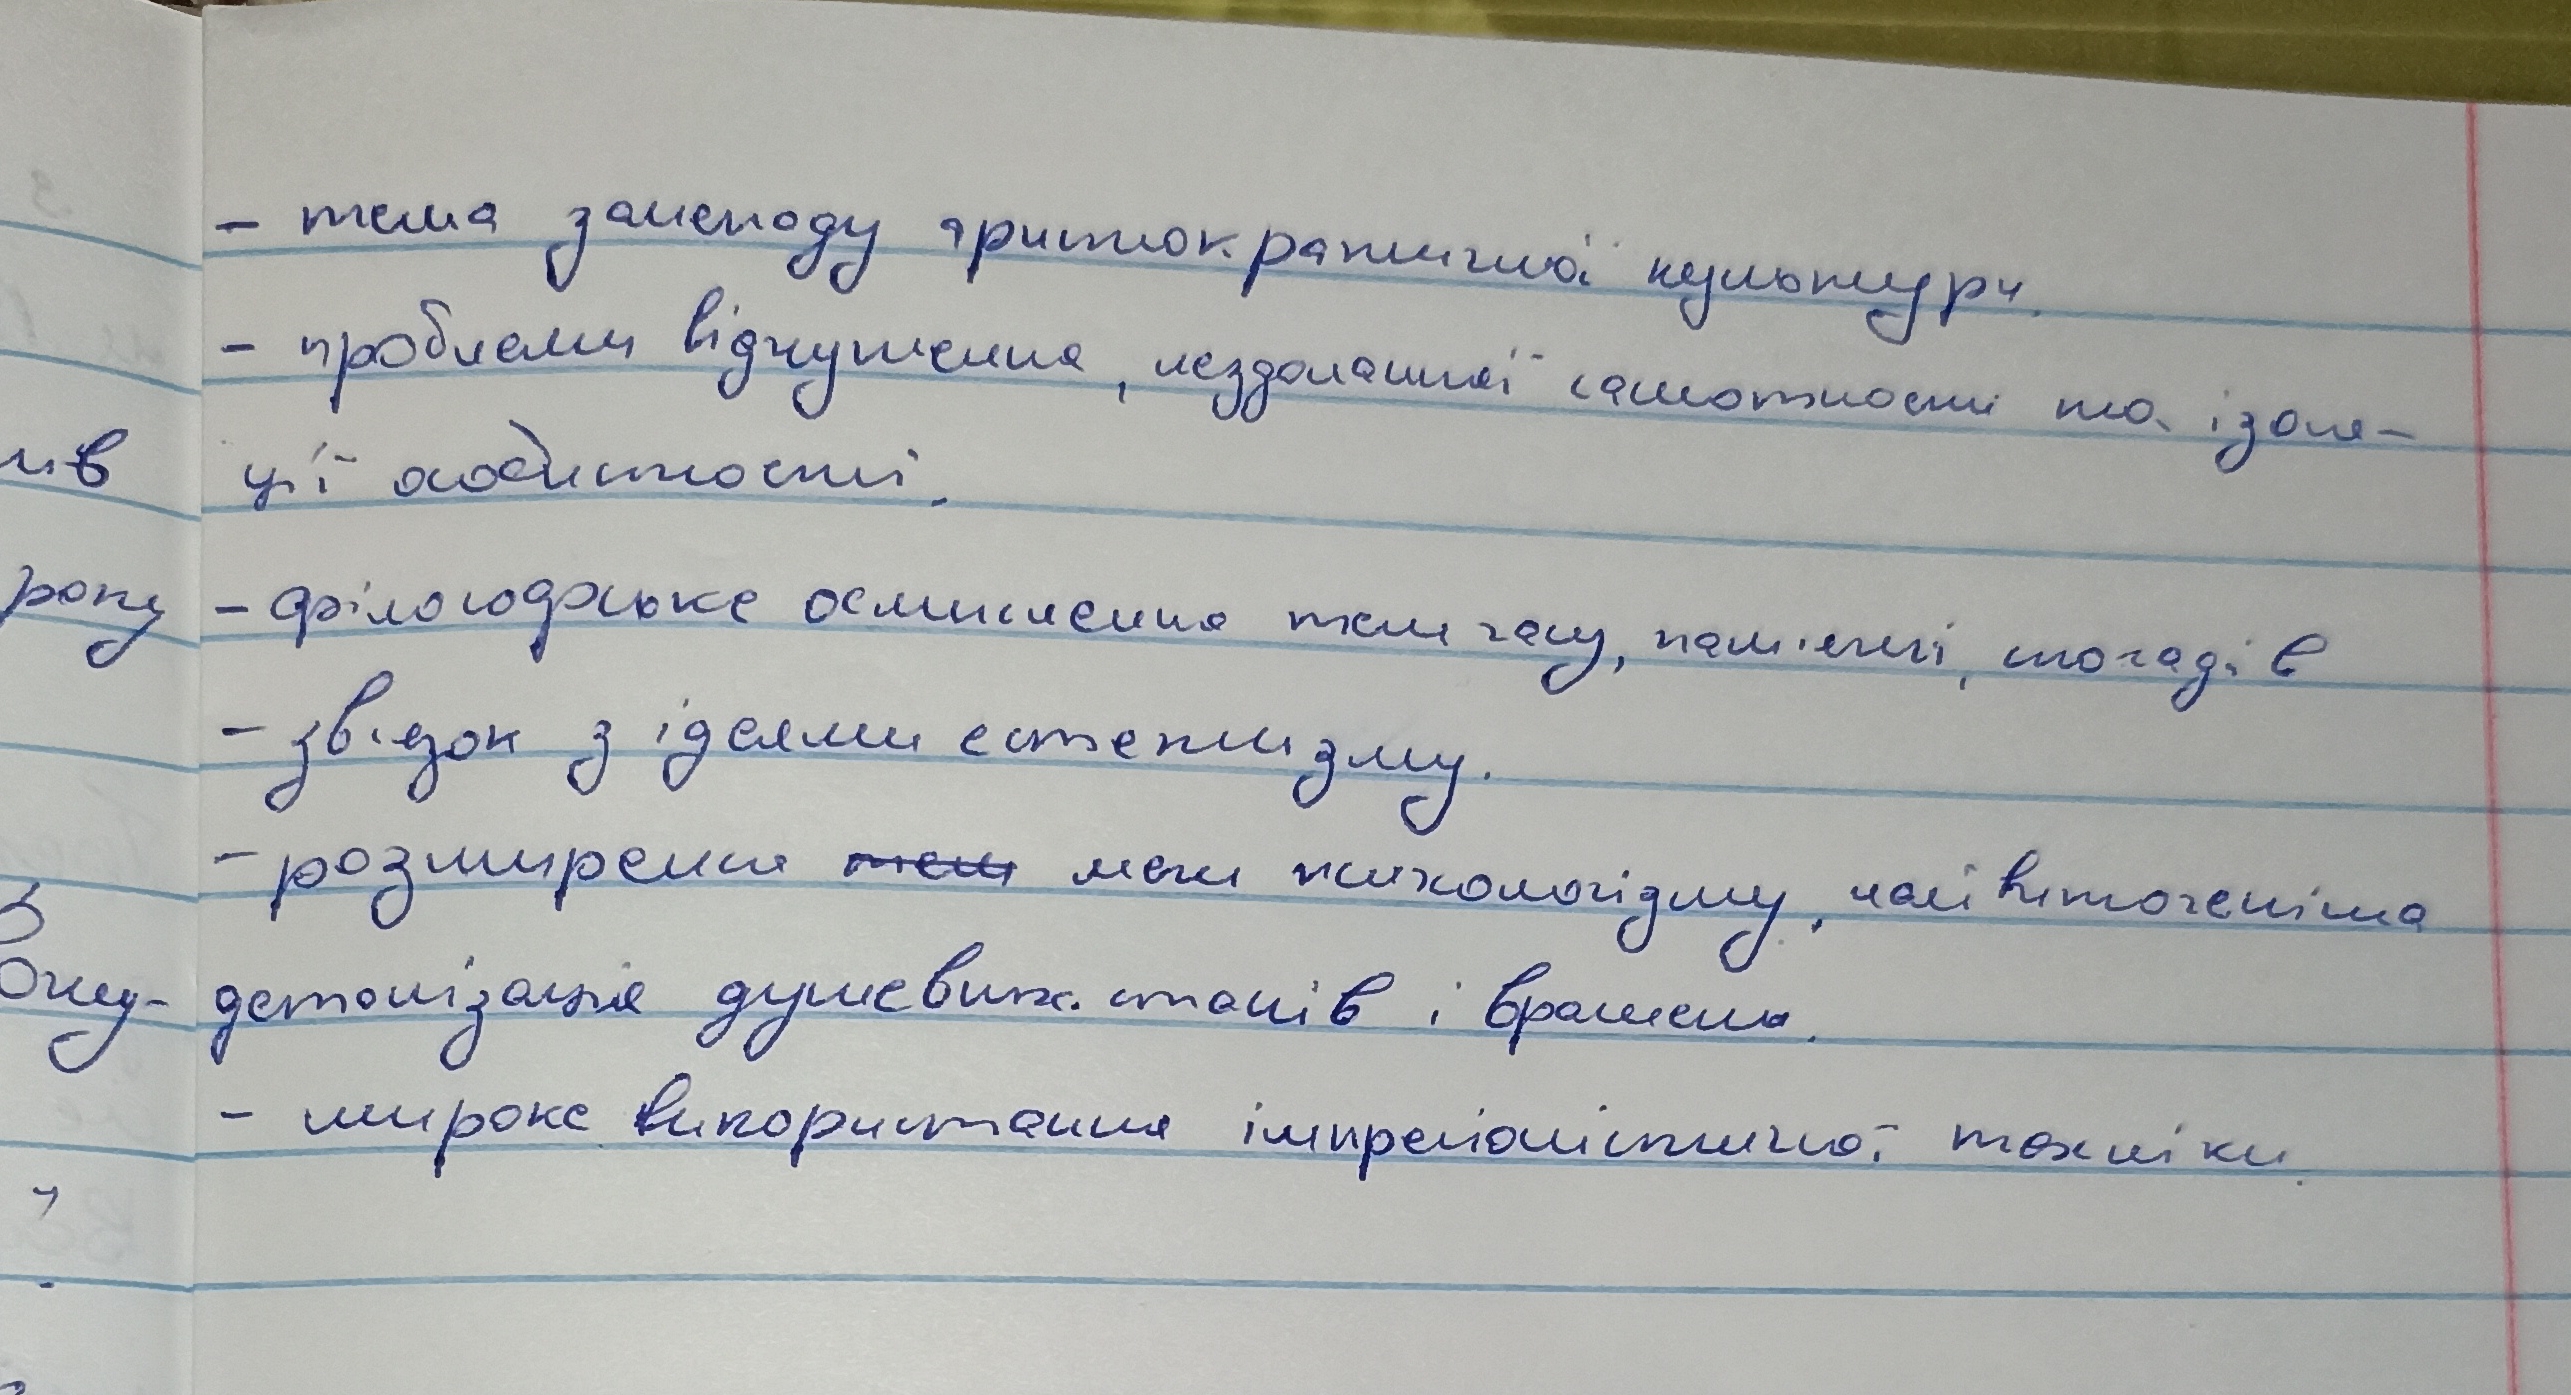 - тема занепаду аристократичної культури.
- проблеми відчуження, нездоланної самотності та ізоля-
ції особистості.
- філософське осмислення тем часу, пам'яті, спогадів
- зв'язок з ідеями естетизму.
- розширення меж психологізму, найвитоненіша
деталізація душевних станів і вражень.
- широке використання імпресіоністичної техніки.